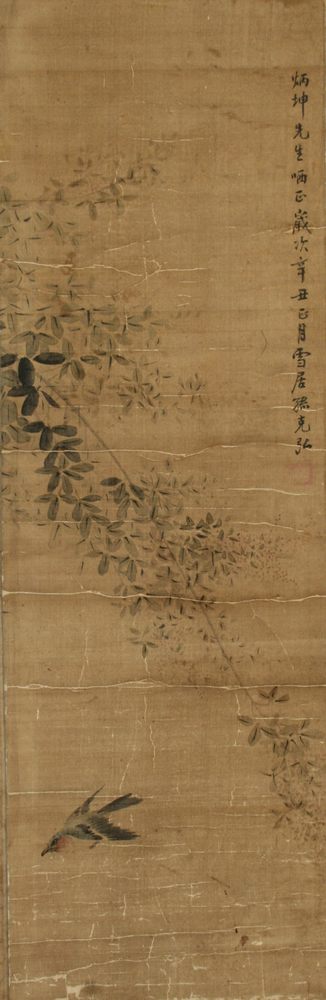 炳坤先生哂正歲次辛丑正月雪居孫克弘